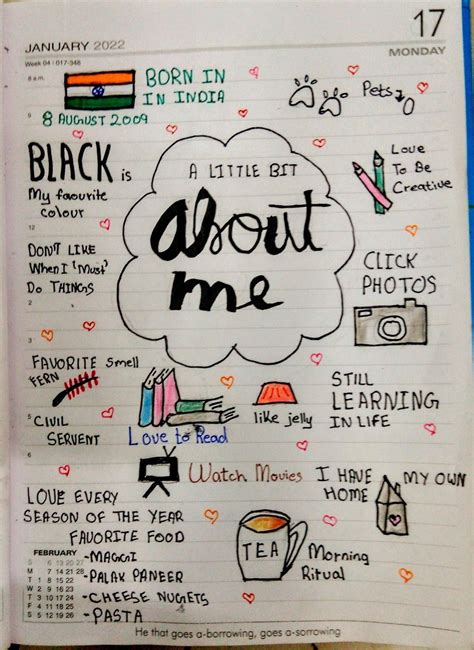 17
JANUARY 2022
MONDAY
Week 04 | 017-348
8 a.m.
BORN IN
IN INDIA
Pets
9
8 AUGUST 2009
BLACK is
My favourite
colour
A LITTLE BIT
about
me
Love
To Be
Creative
12
DON'T LIKE
When I 'Must'
Do THINGS
CLICK
PHOTOS
2
3
FAVORITE Smell
FERN
STILL
LEARNING
IN LIFE
5
CIVIL
SERVENT
Love to Read
like jelly
6
Watch Movies
I HAVE MY OWN
HOME
LOVE EVERY
SEASON OF THE YEAR
FAVORITE FOOD
-MAGGI
-PALAK PANEER
-CHEESE NUGGETS
-PASTA
TEA
Morning
Ritual
FEBRUARY
S 6 13 20 27
M 7 14 21 28
T 1 8 15 22
W 2 9 16 23
T 3 10 17 24
F 4 11 18 25
S 5 12 19 26
He that goes a-borrowing, goes a-sorrowing